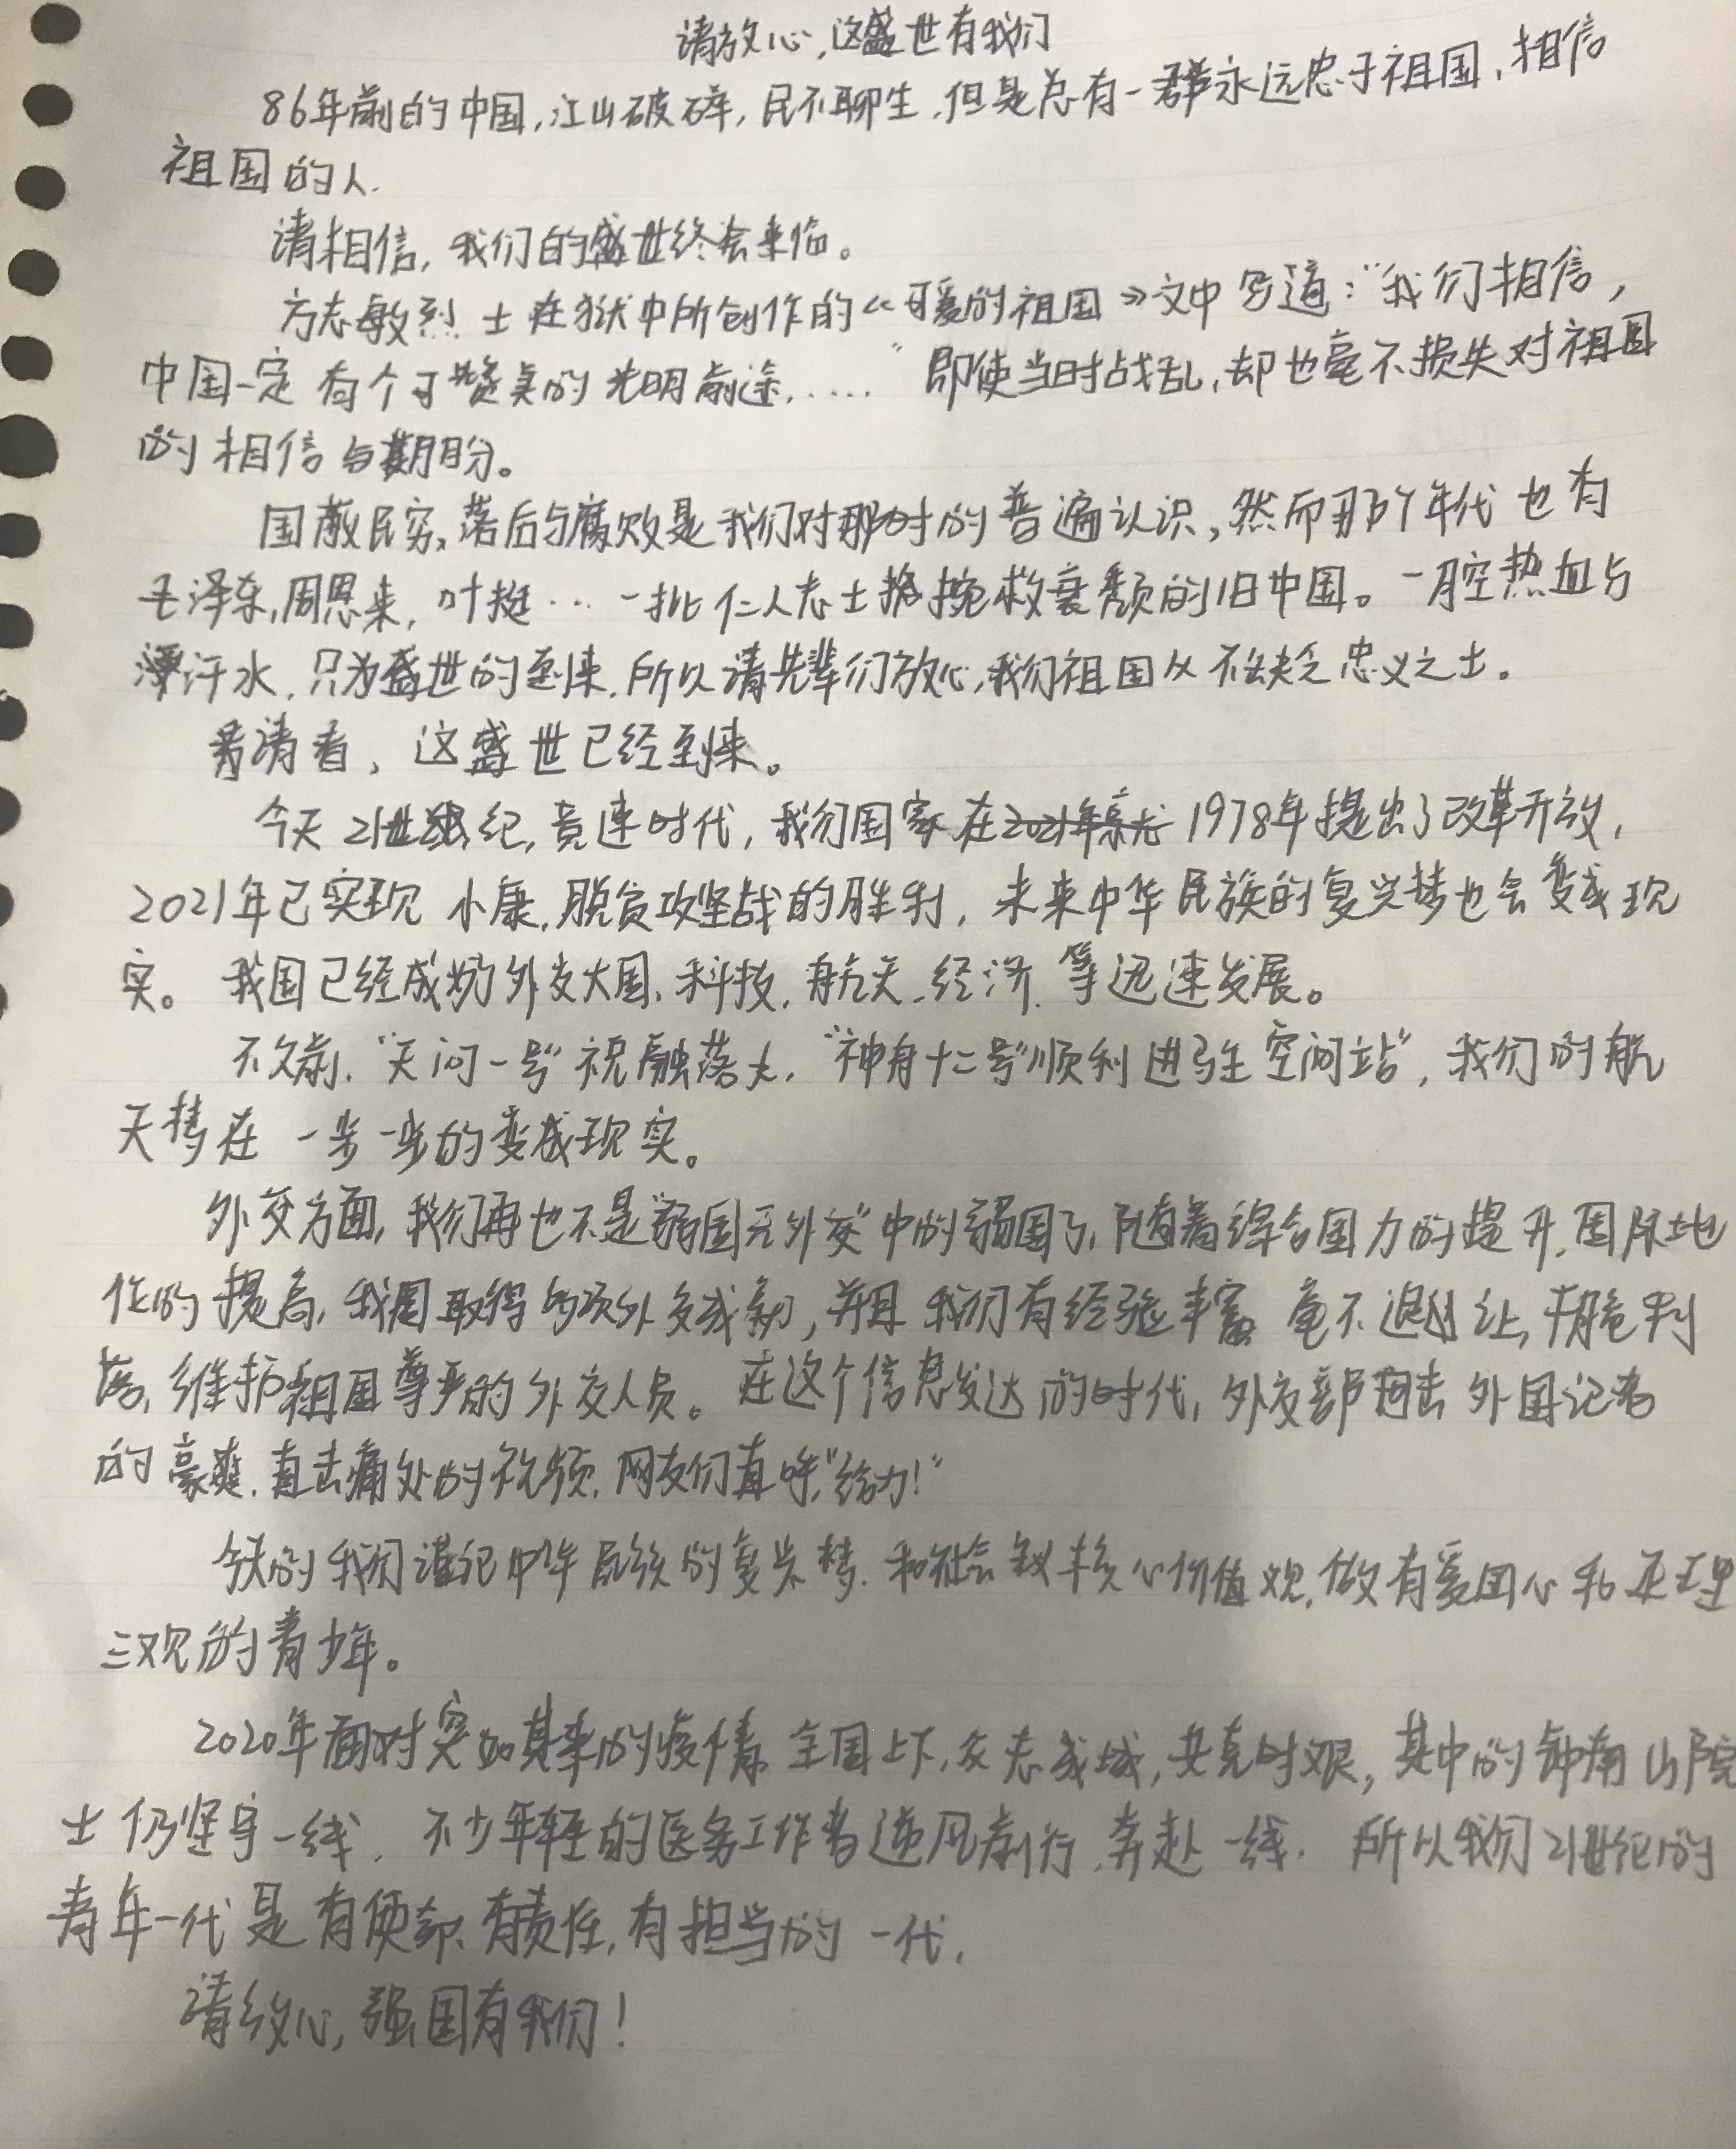 请放心,这盛世有我们
86年前的中国,江山破碎,民不聊生,但是总有一群永远忠于祖国、相信
祖国的人.
请相信,我们的盛世终会来临。
方志敏烈士在狱中所创作的《可爱的祖国》文中写道:“我们相信,
中国一定有个可赞美的光明前途.....” 即使当时战乱,却也毫不损失对祖国
的相信与期盼。
国敝民穷,落后与腐败是我们对那时的普遍认识,然而那个年代也有
毛泽东,周恩来,叶挺...一批仁人志士挽救衰颓的旧中国。一腔热血与
汗水,只为盛世的到来,所以请先辈们放心,我们祖国从不缺乏忠义之士。
请看,这盛世已经到来。
今天21世纪,竞速时代,我们国家在1978年提出了改革开放,
2021年已实现小康,脱贫攻坚战的胜利,未来中华民族的复兴梦也会变成现
实。我国已经成为外交大国、科技,航天、经济、等迅速发展。
不久前,“天问一号”祝融落火,“神舟十二号”顺利进驻空间站”,我们的航
天梦在一步一步的变成现实。
外交方面,我们再也不是“弱国无外交”中的弱国了,随着综合国力的提升,国际地
位的提高,我国取得多项外交成就,并且我们有经验丰富、毫不退让,干脆利
落,维护祖国尊严的外交人员。在这个信息发达的时代,外交部回击外国记者
的豪爽,直击痛处的视频,网友们直呼,“给力!”
今天的我们谨记中华民族的复兴梦,和社会主义核心价值观,做有爱国心和正确
三观的青少年。
2020年面对突如其来的疫情,全国上下,众志成城,共克时艰,其中的钟南山院
士仍坚守一线,不少年轻的医务工作者逆风前行,奔赴一线. 所以我们21世纪的
青年一代是有使命、有责任,有担当的一代,
请放心,强国有我们!